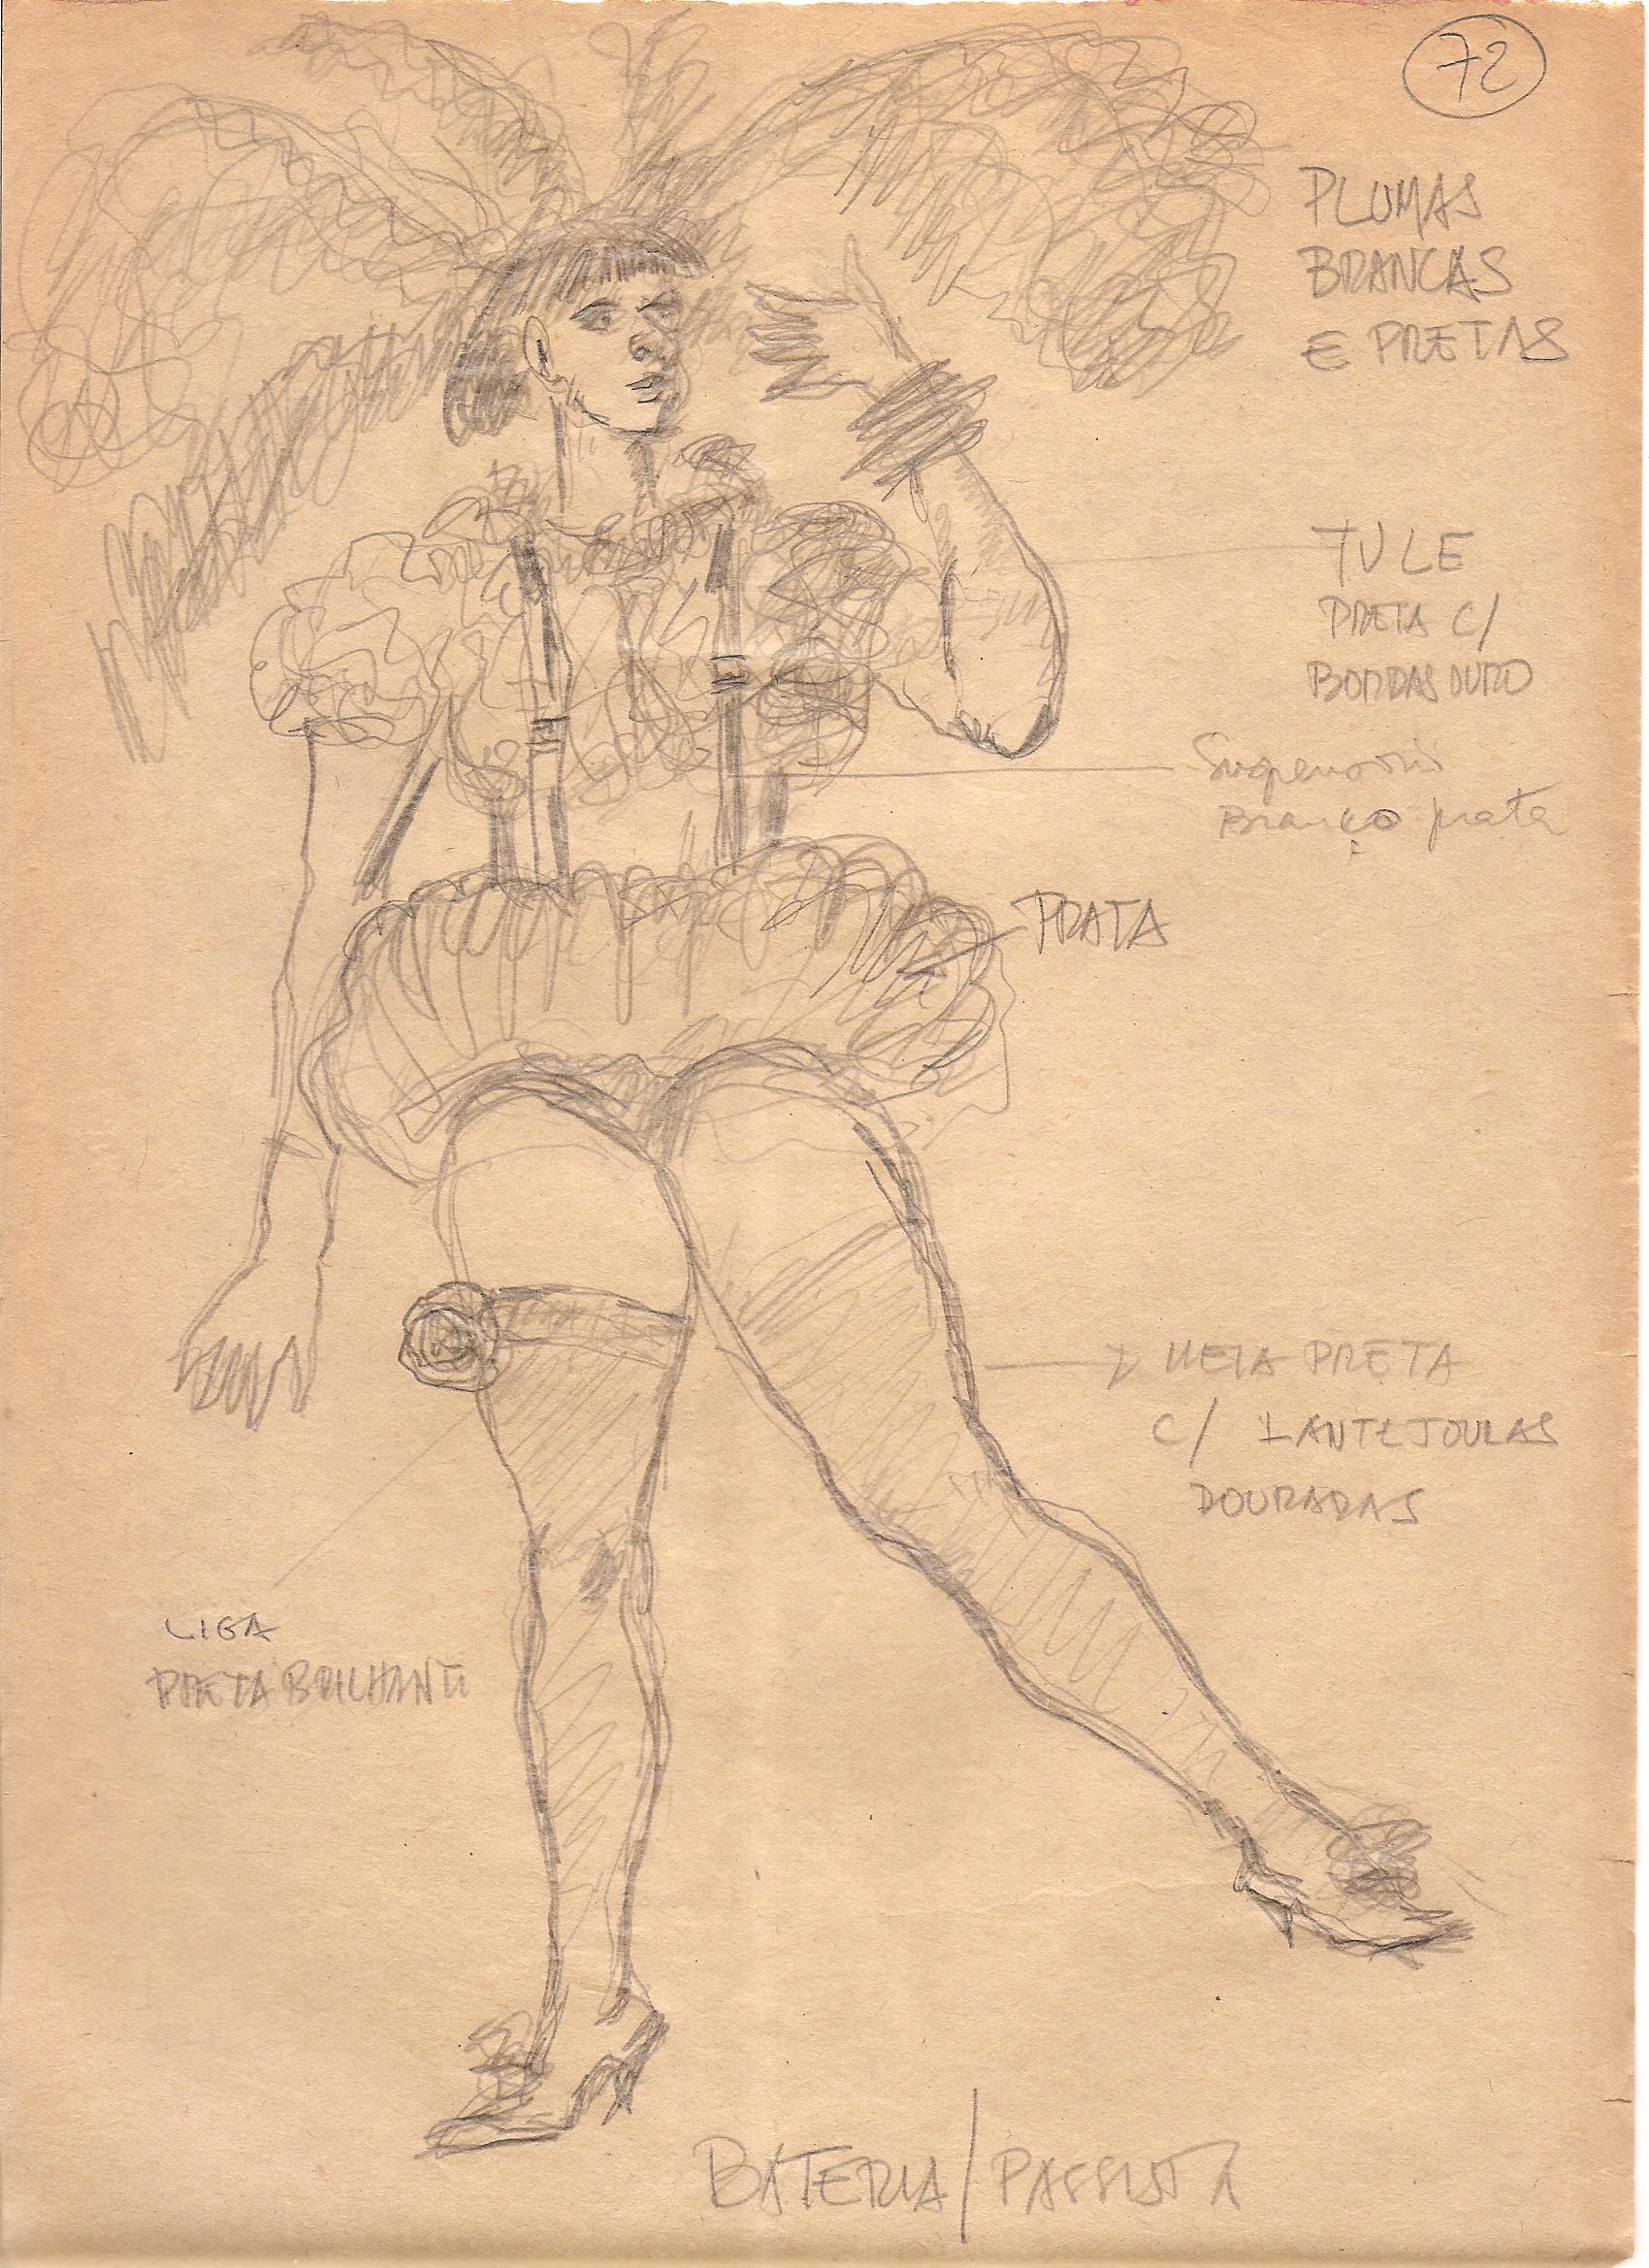 72
PLUMAS
BRANCAS
E PRETAS
TULE
PRETA C/
BORDAS OURO
Suspensório
Branco prata
PRATA
MEIA PRETA
C/ LANTEJOULAS
DOURADAS
LIGA
PRETA BRILHANTE
BATERIA/PASSISTA